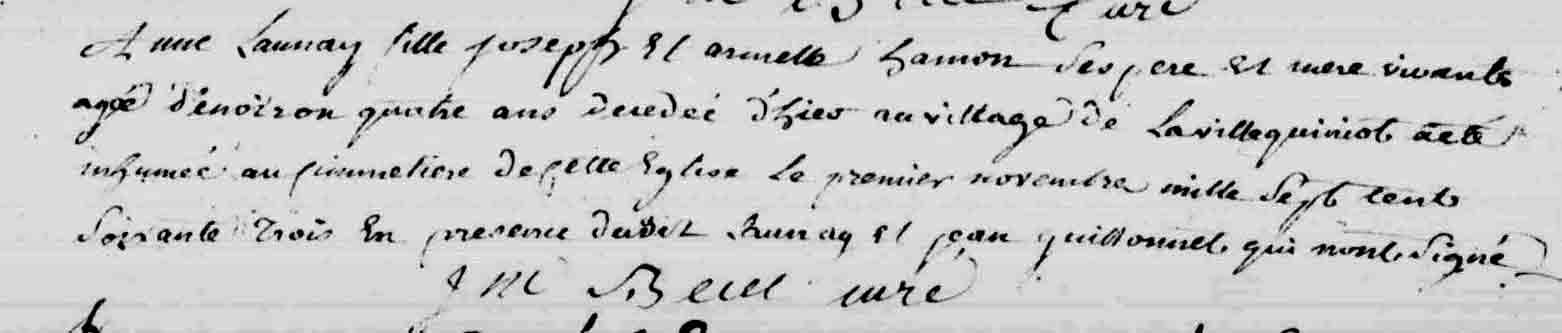 curé
Anne Launay fille joseph Et armelle hamon Ses pere Et mere vivants
agée d'environ quatre ans decedeé d'hier au village de La villequiniot a eté
inhumeé au cimmetiere de cette Eglise Le premier novembre mille Sept cents
Soixante Trois En presence dudit Launay Et jean guillonnet qui nont Signé
J M curé